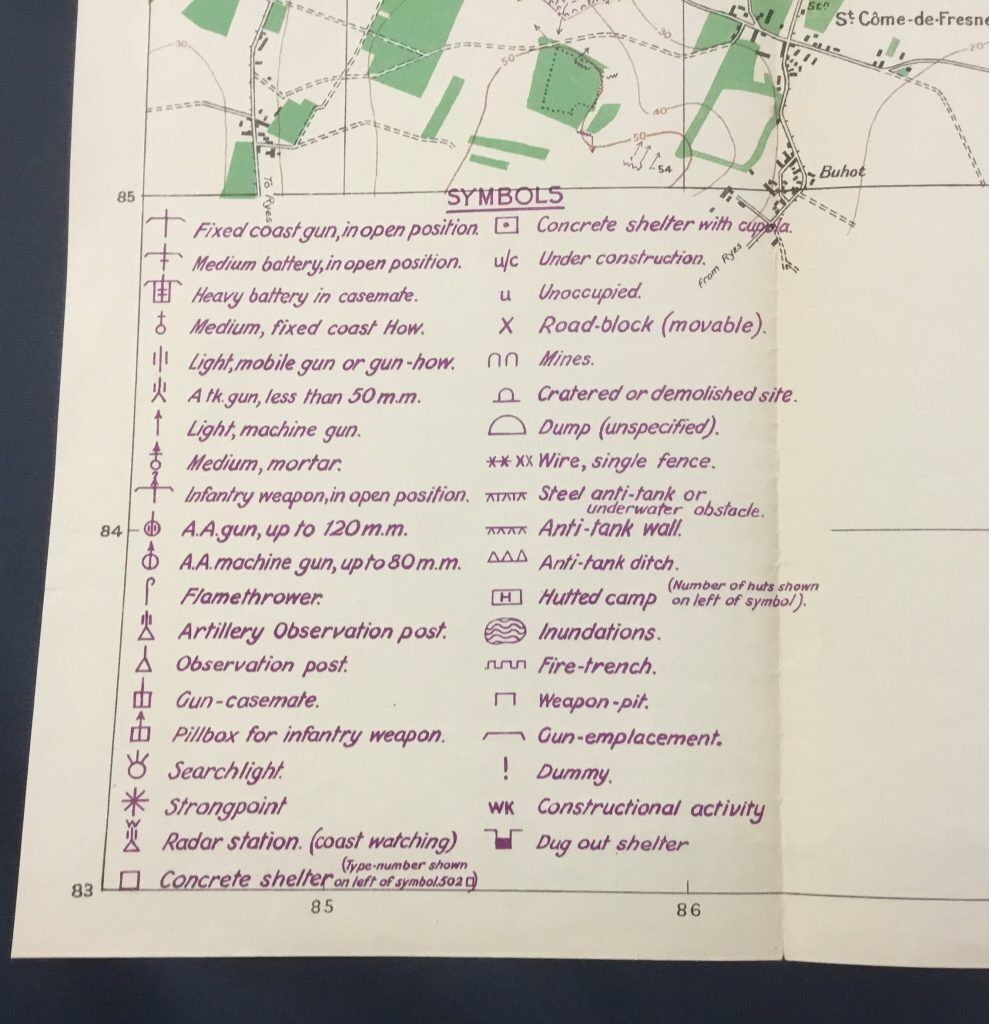 Stn
St Côme-de-Fresne
30
30
20
50
40
50
54
Buhot
85
To Ryes
from Ryes
SYMBOLS
Fixed coast gun, in open position.
Medium battery, in open position.
Heavy battery in casemate.
Medium, fixed coast How.
Light, mobile gun or gun-how.
A tk. gun, less than 50 m.m.
Light, machine gun.
Medium, mortar.
Infantry weapon, in open position.
84
A.A. gun, up to 120 m.m.
A.A. machine gun, up to 80 m.m.
Flamethrower.
Artillery Observation post.
Observation post.
Gun-casemate.
Pillbox for infantry weapon.
Searchlight.
Strongpoint
Radar station. (coast watching)
Concrete shelter (Type-number shown
on left of symbol. 502 □)
Concrete shelter with cupola.
u/c Under construction.
u Unoccupied.
X Road-block (movable).
Mines.
Cratered or demolished site.
Dump (unspecified).
Wire, single fence.
Steel anti-tank or
underwater obstacle.
Anti-tank wall.
Anti-tank ditch.
H Hutted camp (Number of huts shown
on left of symbol).
Inundations.
Fire-trench.
Weapon-pit.
Gun-emplacement.
! Dummy.
WK Constructional activity
Dug out shelter
83
85
86